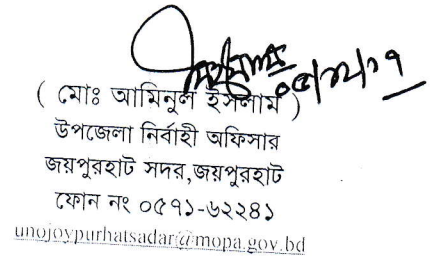 ০৫/১২/১৭
( মোঃ আমিনুল ইসলাম )
উপজেলা নির্বাহী অফিসার
জয়পুরহাট সদর,জয়পুরহাট
ফোন নং ০৫৭১-৬২২৪১
unojoypurhatsadar@mopa.gov.bd